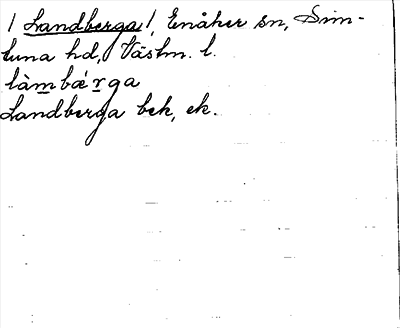 / Landberga /, Enåker sn, Sim-
tuna hd, Västm. l.
làmbæ´rga
Landberga bek, ek.